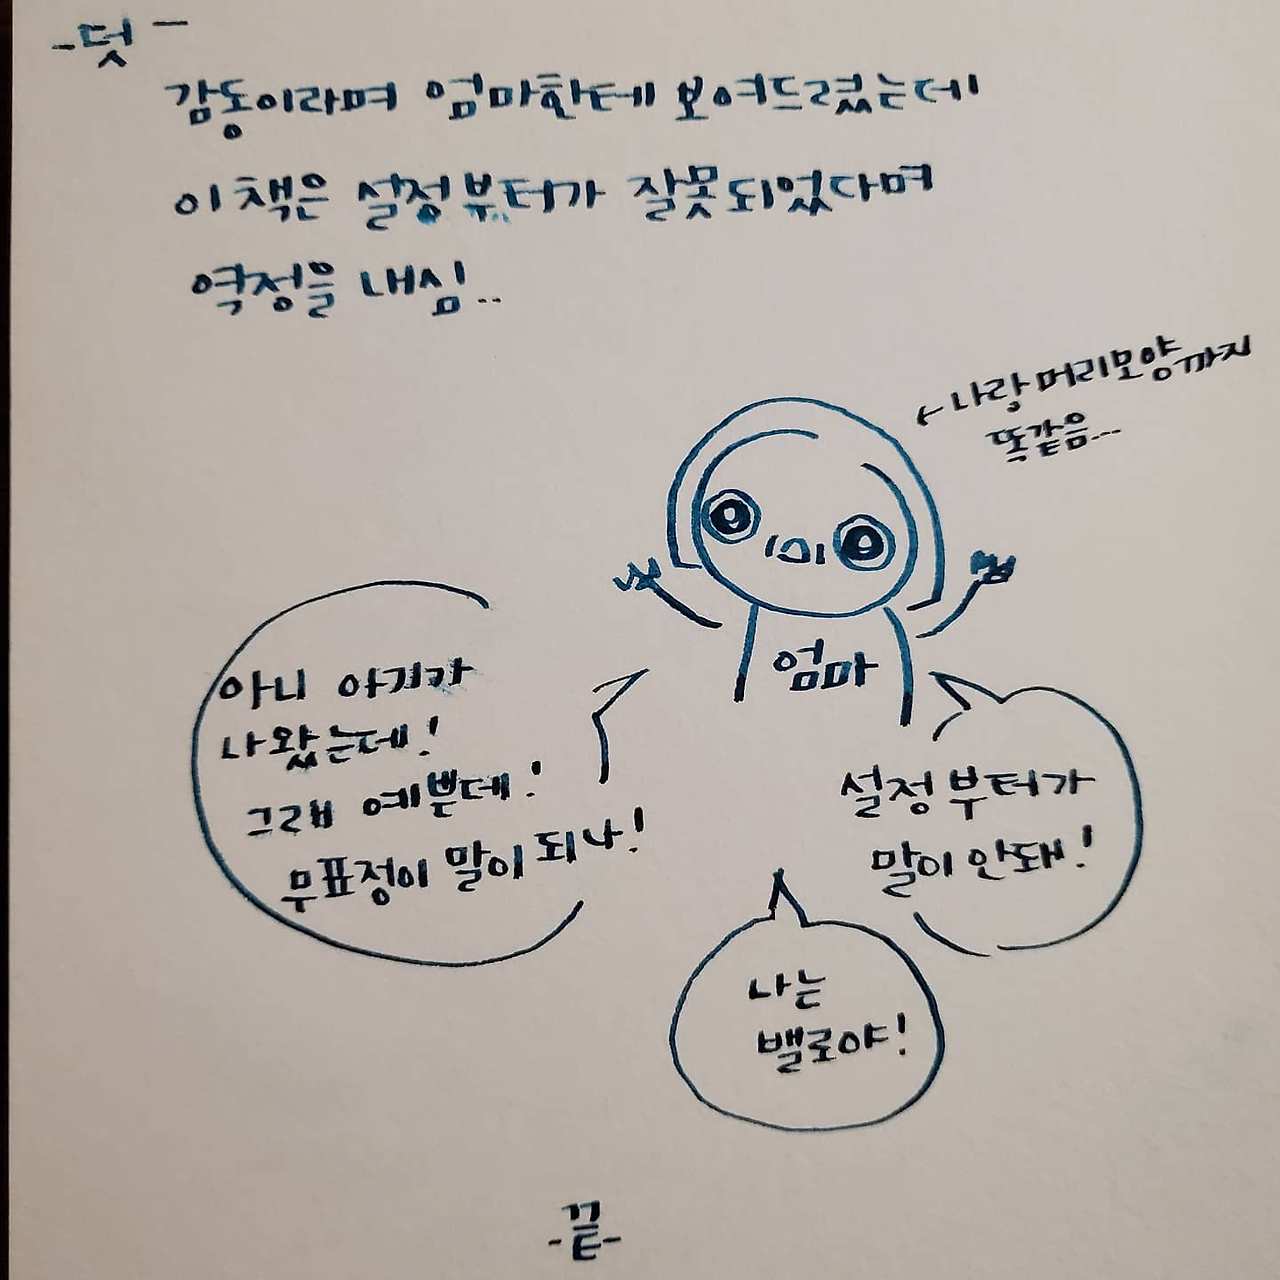 -덧-
감동이라며 엄마한테 보여드렸는데
이 책은 설정부터가 잘못되었다며
역정을 내심..
←나랑 머리모양까지
똑같음...
엄마
아니 아기가
나왔는데!
그래 예쁜데!
무표정이 말이 되나!
설정부터가
말이 안돼!
나는
밸로야!
-끝-